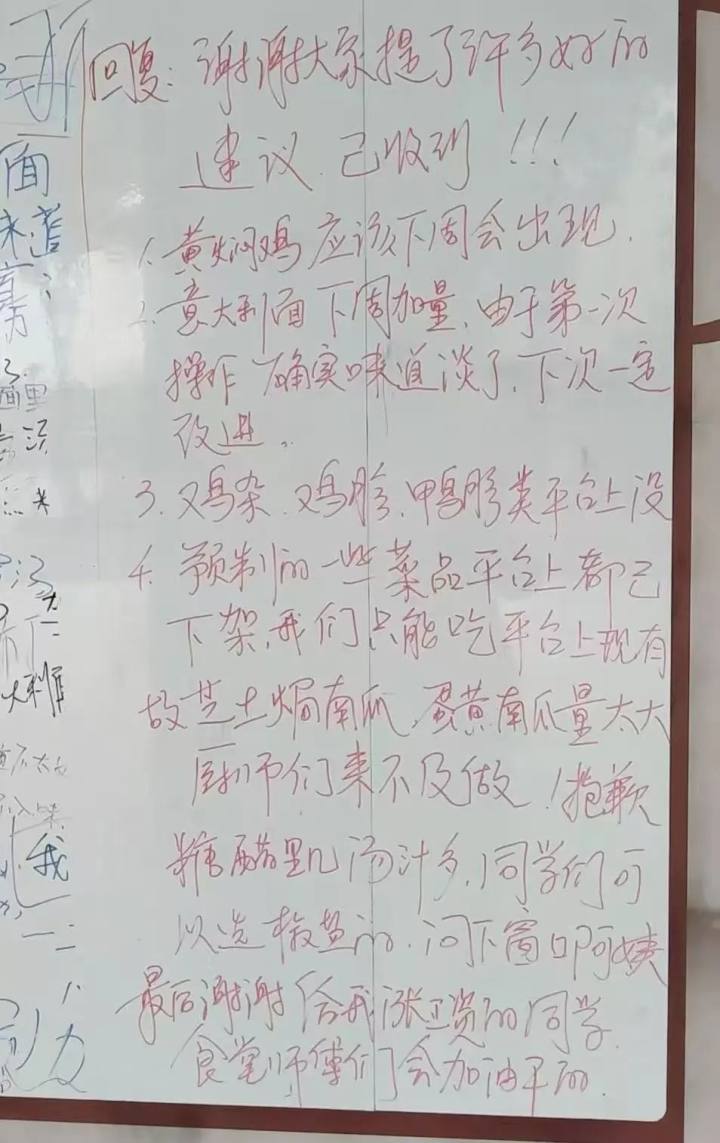 回复：谢谢大家提了许多好的
建议.已收到!!!
1.黄焖鸡应该下周会出现.
2.意大利面下周加量.由于第一次
操作确实味道淡了.下次一定
改进。
3.鸡杂.鸡胗.鸭胗类平台上没
4.预制的一些菜品平台上都已
下架.我们只能吃平台上现有
故芝士焗南瓜.蛋黄南瓜量太大
厨师们来不及做!抱歉
糖醋里几汤汁多.同学们可
以选椒盐的.问下窗口阿姨
最后谢谢给我涨工资的同学.
食堂师傅们会加油干的.
面
面里
大利
我
一二